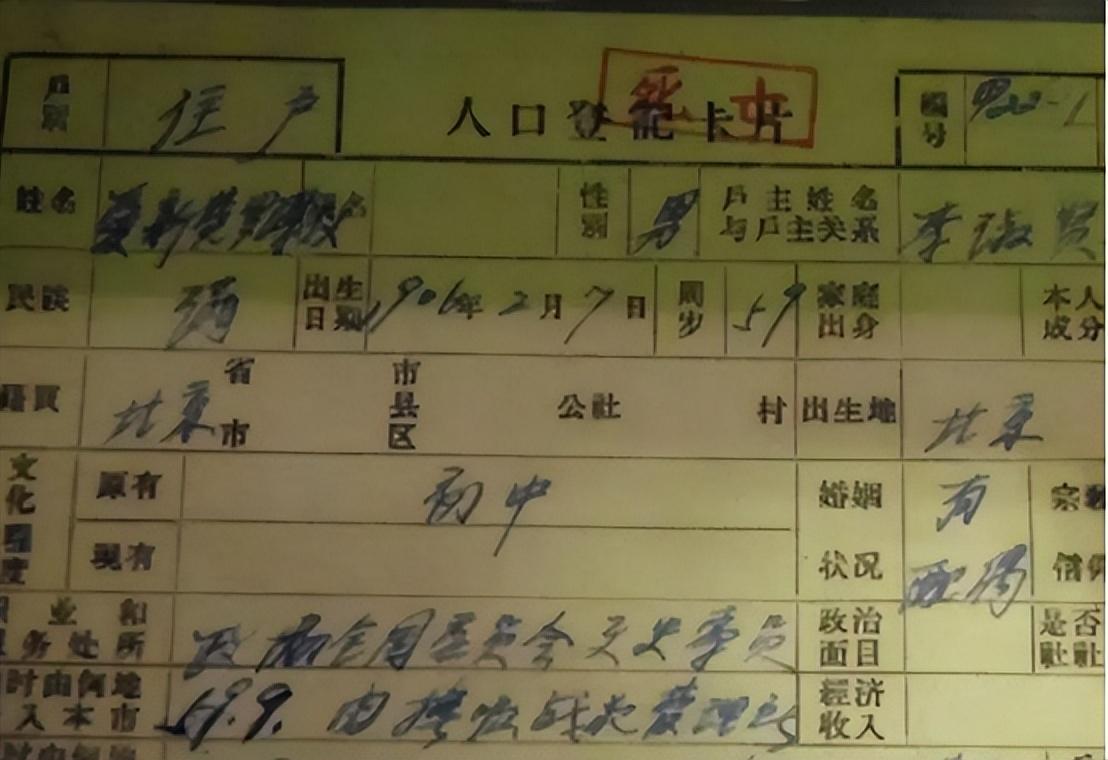 户别 住户 人口登记卡片 死亡 编号
姓名 爱新觉罗溥仪 性别 男 戶主姓名 李淑贤
与戶主关系
民族 满 出生日期 1906年2月7日 周岁 59 家庭出身 本人成分
籍贯 北京 省市 市县区 公社 村 出生地 北京
文化程度 原有 初中 婚姻状况 有配偶 宗教信仰
现有
业和 政协全国委员会文史专员 政治面目 是否
务处所 社社
时由何地 59.9. 由抚顺战犯管理所 經济收入
入本市
时由何地